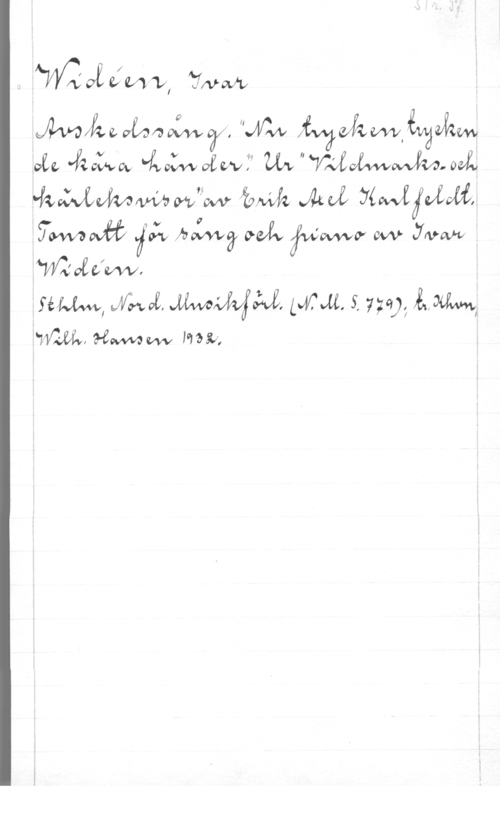 Widéen, Ivar
Avskedssång. "Nu trycken, trycken
de kära händer." Ur "Vildmarks- och
kärleksvisor" av Erik Axel Karlfeldt.
Tonsatt för sång och piano av Ivar
Widéen.
Sthlm, Nord. Musikförl. (N. M. S. 779); tr. Khvn,
Wilh. Hansen 1932.